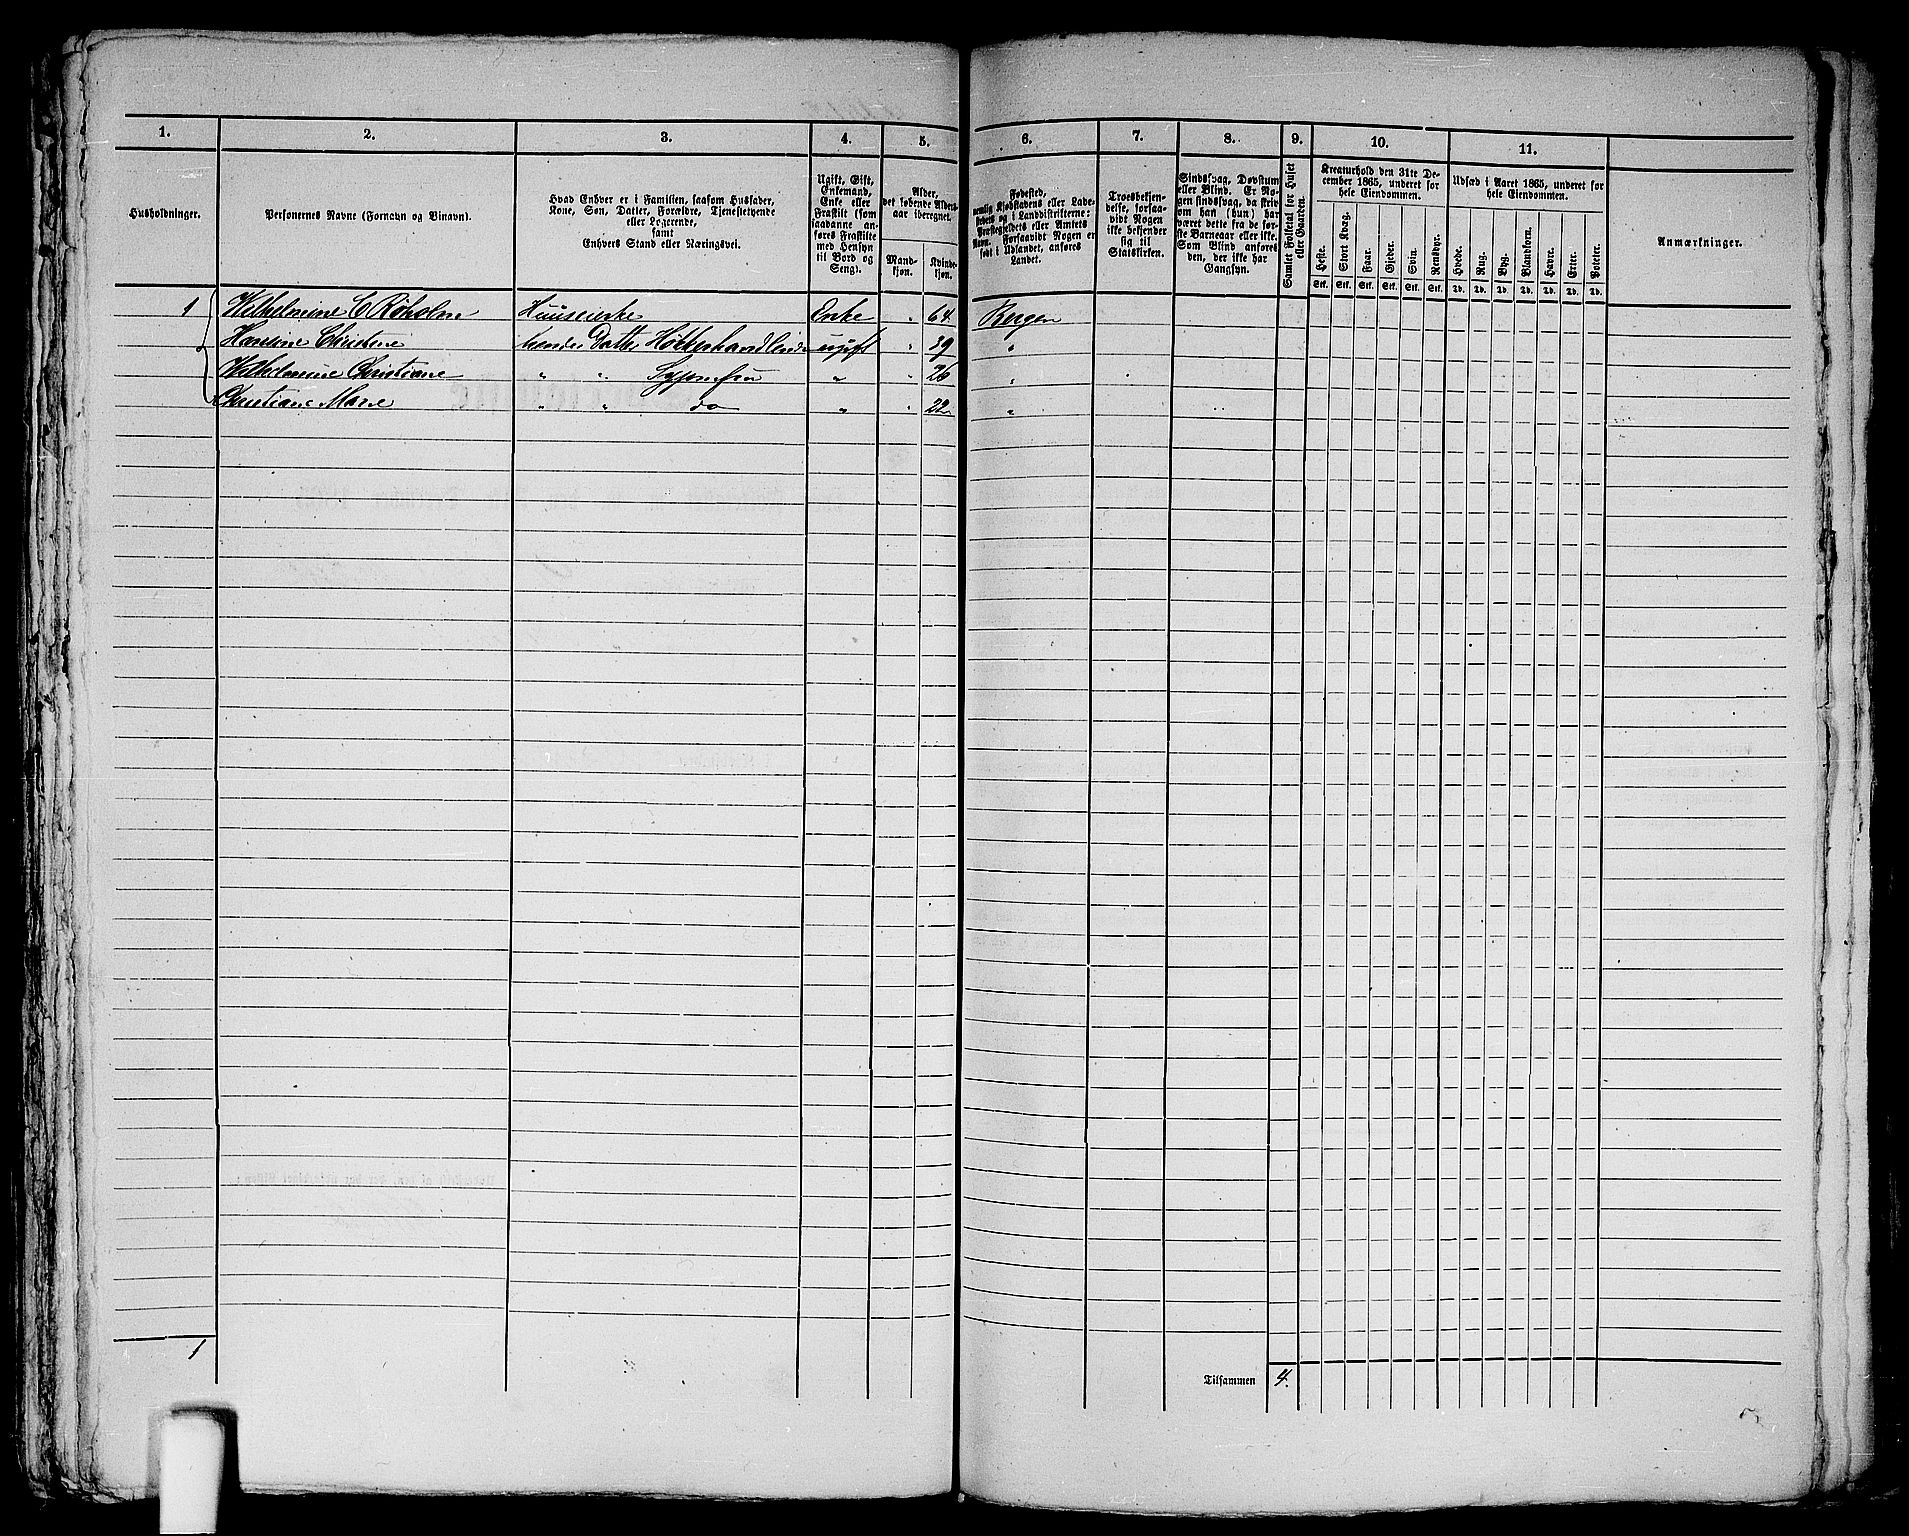 1. 2. 3. 4. 5. 6. 7. 8. 9. 10. 11.
Husholdninger.
Personernes Navne (Fornavn og Binavn).
Hvad Enhver er i Familien, saasom Husfader,
Kone, Søn, Datter, Forældre, Tjenestetyende
eller Logerende,
samt
Enhvers Stand eller Næringsvei.
Ugift, Gift,
Enkemand,
Enke eller
Fraskilt (som
saadanne an-
føres Fraskilte
med Hensyn
til Bord og
Seng).
Alder,
det løbende Alders-
aar iberegnet.
Mand-
kjøn.
Kvinde-
kjøn.
Fødested,
nemlig Kjøbstadens eller Lade-
stedets og i Landdistrikterne:
Præstegjeldets eller Amtets
Navn. Forsaavidt Nogen er
født i Udlandet, anføres
Landet.
Troesbekjen-
delse, forsaa-
vidt Nogen
ikke bekjender
sig til
Statskirken.
Sindssvag, Døvstum
eller Blind. Er No-
gen sindssvag, da skriv
om han (hun) har
været dette fra de før-
ste Barneaar eller ikke.
Som Blind anføres
den, der ikke har
Gangsyn.
Samlet Folketal for Huset
eller Gaarden.
Kreaturhold den 31te De-
cember 1865, underet for
hele Eiendommen.
Heste. Stort Kvæg. Faar. Gjeder. Svin. Rensdyr.
Stk. Stk. Stk. Stk. Stk. Stk.
Udsæd i Aaret 1865, underet for
hele Eiendommen.
Hvede. Rug. Byg. Blandkorn. Havre. Erter. Poteter.
Td. Td. Td. Td. Td. Td. Td.
Anmærkninger.
1 Wilhelmine C Røholm Huuseierske Enke " 64 Bergen
Hansine Christine hendes Datter Høkerhandlende ugift " 39 "
Wilhelmine Christiane " " Syjomfru " " 26 "
Christiane Marie " " do " " 22 "
1
Tilsammen 4.